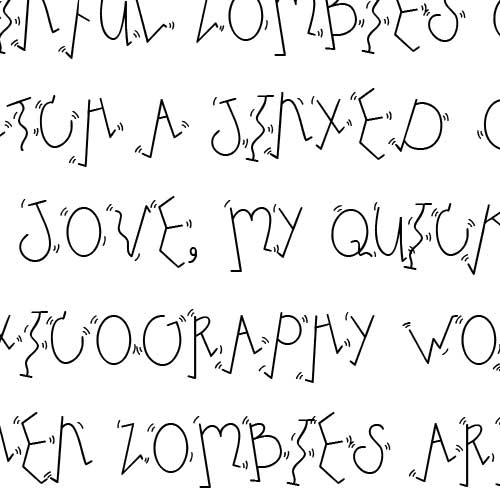 INFUL ZOMBIES
TCH A JINXED
JOVE, MY QUICK
XICOGRAPHY WO
HEN ZOMBIES AR